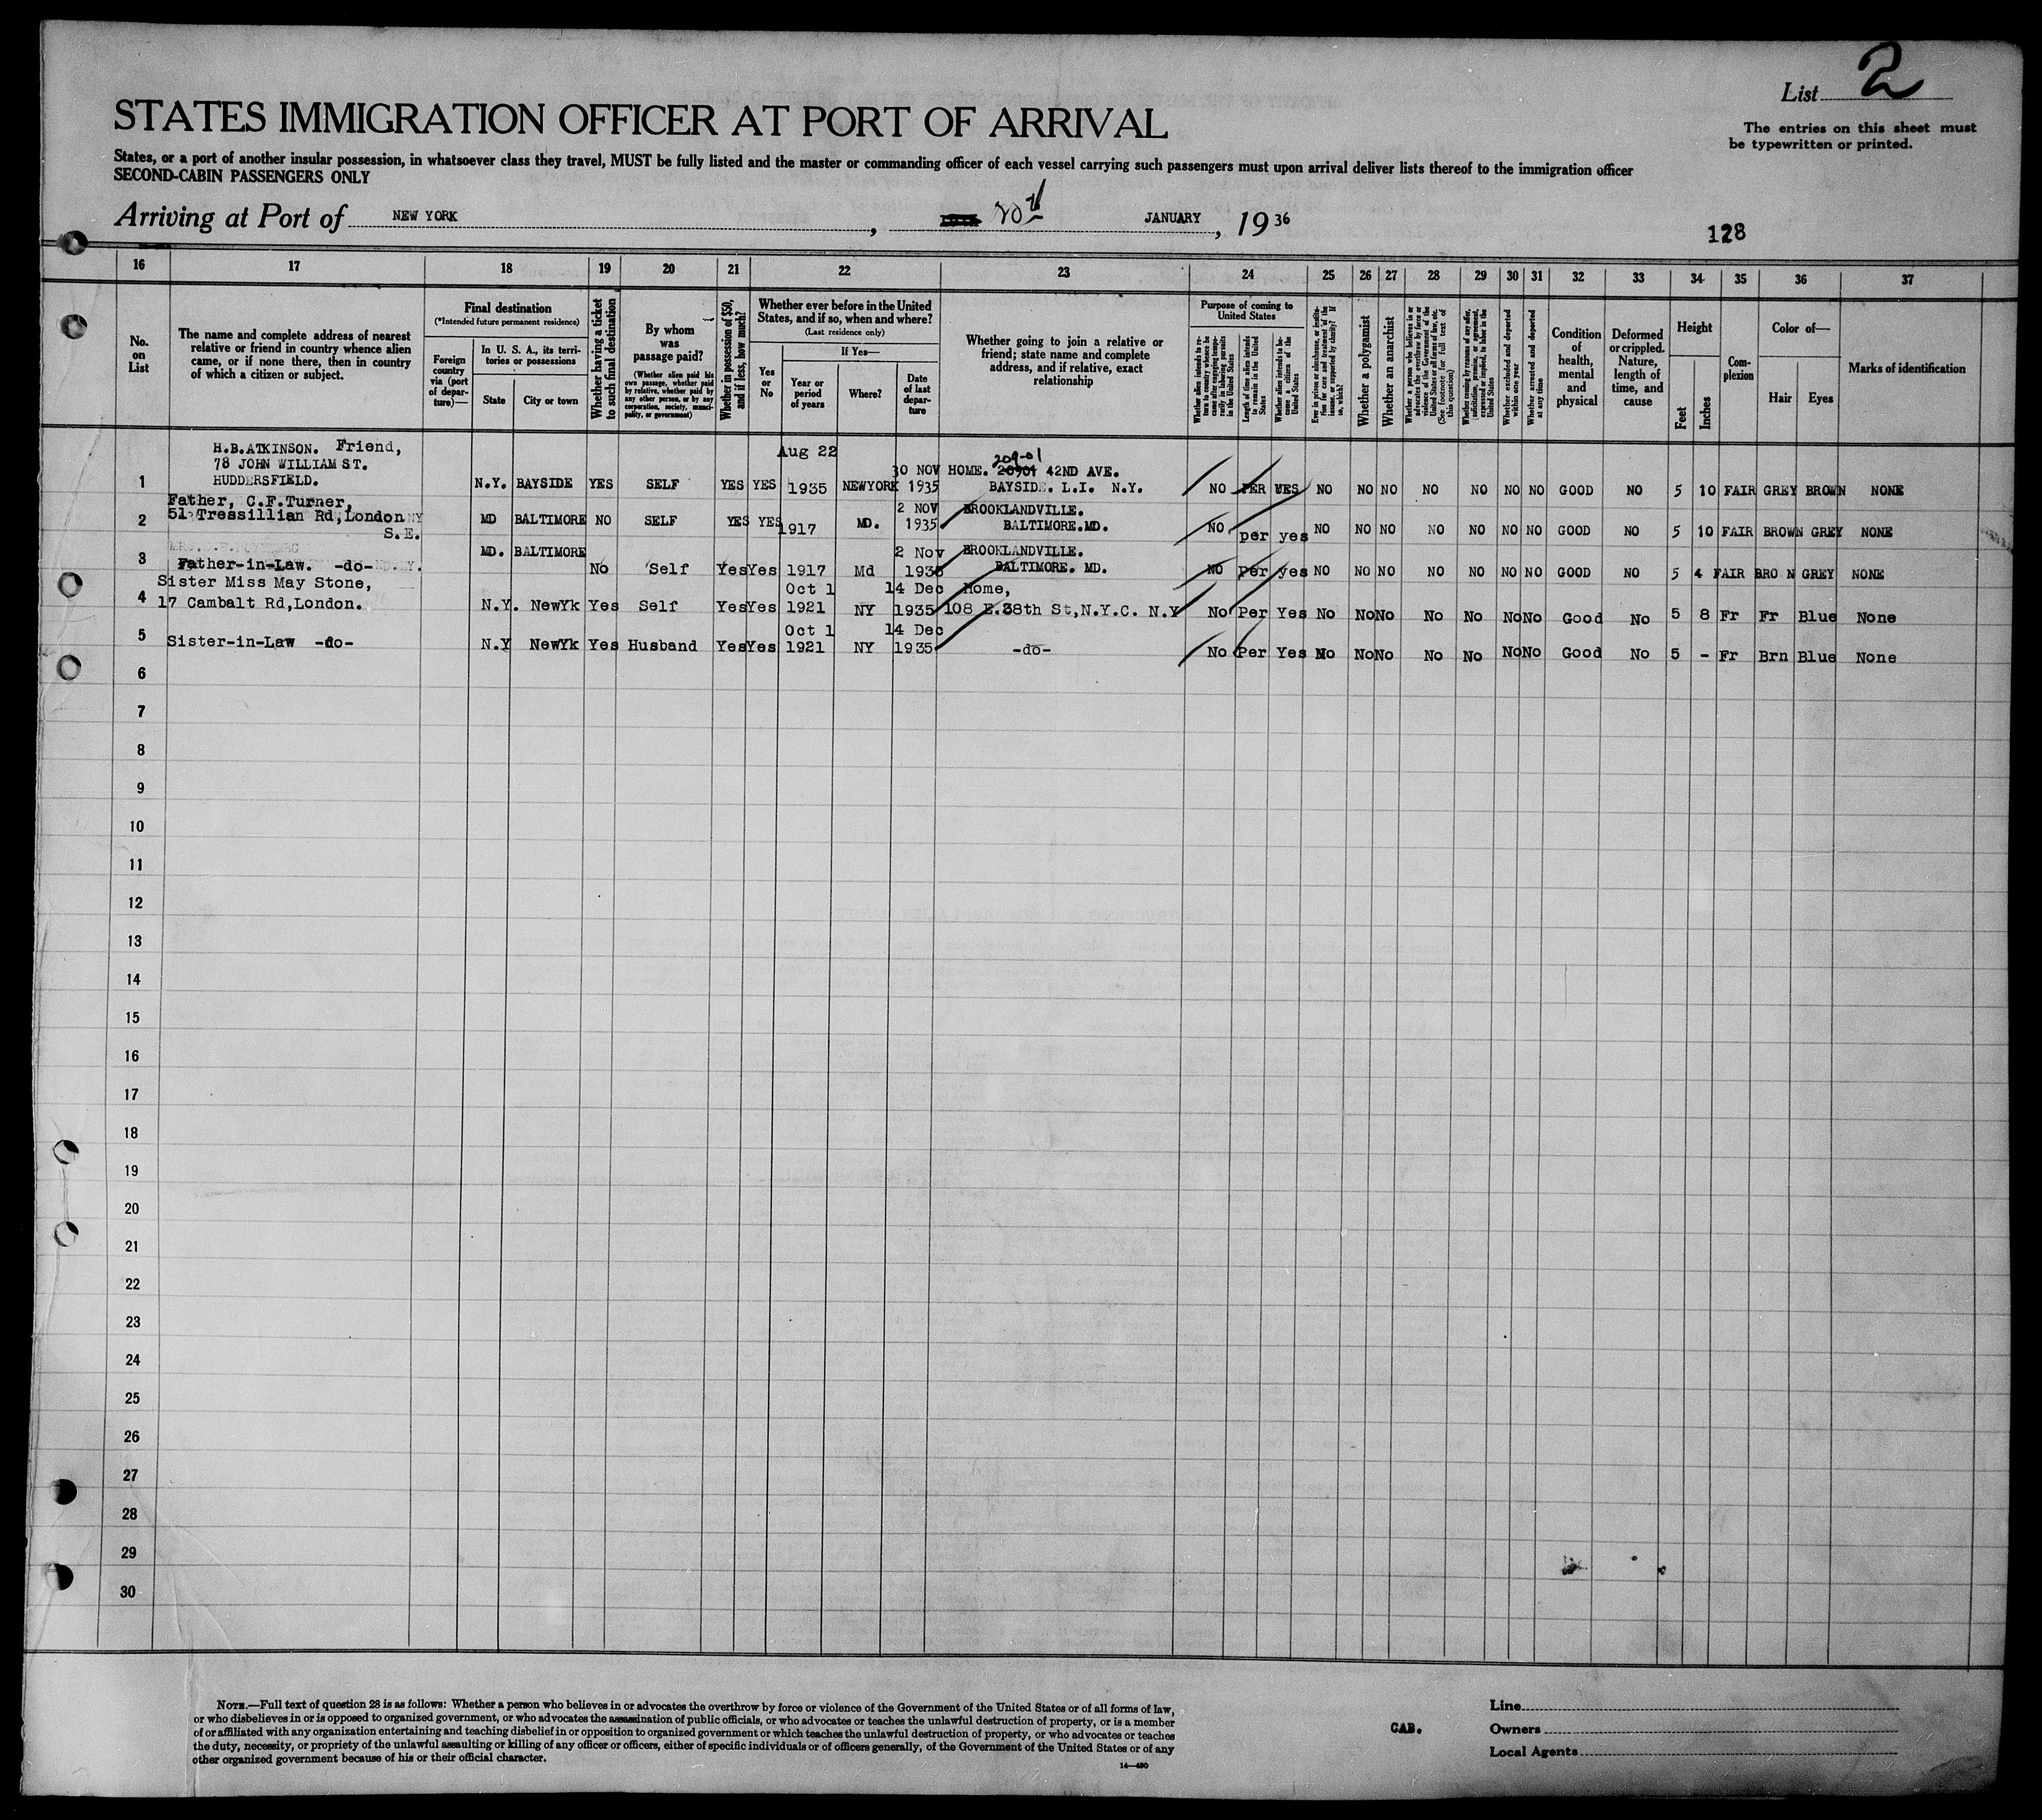 List 2
STATES IMMIGRATION OFFICER AT PORT OF ARRIVAL
The entries on this sheet must
be typewritten or printed.
States, or a port of another insular possession, in whatsoever class they travel, MUST be fully listed and the master or commanding officer of each vessel carrying such passengers must upon arrival deliver lists thereof to the immigration officer
SECOND-CABIN PASSENGERS ONLY
Arriving at Port of NEW YORK, 20th JANUARY, 19 36
128
16 17 18 19 20 21 22 23 24 25 26 27 28 29 30 31 32 33 34 35 36 37
No. on List
The name and complete address of nearest relative or friend in country whence alien came, or if none there, then in country of which a citizen or subject.
Final destination
(*Intended future permanent residence)
Foreign country via (port of departure)—
In U. S. A., its territories or possessions
State
City or town
Whether having a ticket to such final destination
By whom was passage paid?
(Whether alien paid his own passage, whether paid by relative, whether paid by any other person, or by any corporation, society, municipality, or government)
Whether in possession of $50, and if less, how much?
Whether ever before in the United States, and if so, when and where?
(Last residence only)
Yes or No
If Yes—
Year or period of years
Where?
Date of last departure
Whether going to join a relative or friend; state name and complete address, and if relative, exact relationship
Purpose of coming to United States
Whether alien intends to return to country whence he came after engaging temporarily in laboring pursuits in the United States
Length of time alien intends to remain in the United States
Whether alien intends to become a citizen of the United States
Ever in prison or almshouse, or institution for care and treatment of the insane, or supported by charity? If so, which?
Whether a polygamist
Whether an anarchist
Whether a person who believes in or advocates the overthrow by force or violence of the Government of the United States or all forms of law, etc. (See footnote for full text of this question)
Whether coming by reasons of any offer, solicitation, promise, or agreement, expressed or implied, to labor in the United States
Whether excluded and deported within one year
Whether arrested and deported at any time
Condition of health, mental and physical
Deformed or crippled. Nature, length of time, and cause
Height
Feet
Inches
Complexion
Color of—
Hair
Eyes
Marks of identification
H.B.ATKINSON. Friend,
78 JOHN WILLIAM ST.
1 HUDDERSFIELD. N.Y. BAYSIDE YES SELF YES YES Aug 22 1935 NEWYORK 30 NOV 1935 HOME. 209-01 20901 42ND AVE. BAYSIDE. L.I. N.Y. NO PER YES NO NO NO NO NO NO NO GOOD NO 5 10 FAIR GREY BROWN NONE
Father, C.F.Turner,
2 51 Tressillian Rd, London NY S.E. MD BALTIMORE NO SELF YES YES 1917 MD. 2 NOV 1935 BROOKLANDVILLE. BALTIMORE.MD. NO per yes NO NO NO NO NO NO NO GOOD NO 5 10 FAIR BROWN GREY NONE
3 Father-in-Law. -do- MD. BALTIMORE No Self Yes Yes 1917 Md 2 Nov 1935 BROOKLANDVILLE. BALTIMORE. MD. NO Per yes NO NO NO NO NO NO NO GOOD NO 5 4 FAIR BRO N GREY NONE
Sister Miss May Stone,
4 17 Cambalt Rd,London. N.Y. NewYk Yes Self Yes Yes Oct 1 1921 NY 14 Dec 1935 Home, 108 E.38th St,N.Y.C. N.Y No Per Yes No No No No No No No Good No 5 8 Fr Fr Blue None
5 Sister-in-Law -do- N.Y NewYk Yes Husband Yes Yes Oct 1 1921 NY 14 Dec 1935 -do- No Per Yes No No No No No No No Good No 5 - Fr Brn Blue None
6
7
8
9
10
11
12
13
14
15
16
17
18
19
20
21
22
23
24
25
26
27
28
29
30
NOTE.—Full text of question 28 is as follows: Whether a person who believes in or advocates the overthrow by force or violence of the Government of the United States or of all forms of law,
or who disbelieves in or is opposed to organized government, or who advocates the assassination of public officials, or who advocates or teaches the unlawful destruction of property, or is a member
of or affiliated with any organization entertaining and teaching disbelief in or opposition to organized government or which teaches the unlawful destruction of property, or who advocates or teaches
the duty, necessity, or propriety of the unlawful assaulting or killing of any officer or officers, either of specific individuals or of officers generally, of the Government of the United States or of any
other organized government because of his or their official character.
14—430
CAB.
Line
Owners
Local Agents